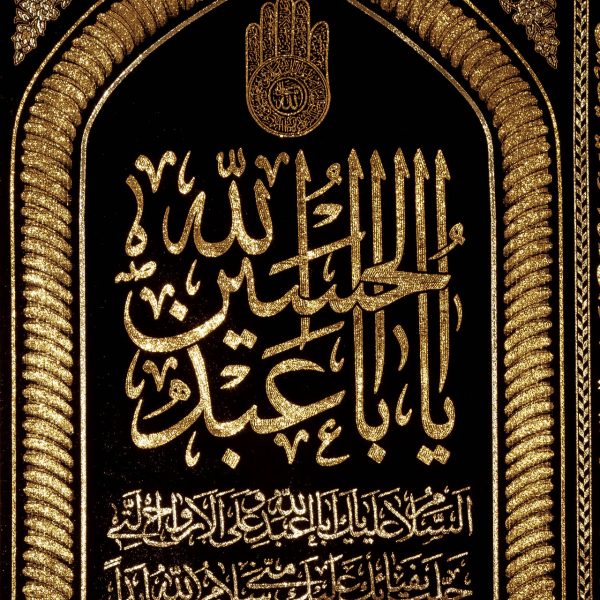 الله
يا ابا عبد الله الحسين
السلام عليك يا ابا عبد الله وعلى الارواح التي
حلت بفنائك عليك مني سلام الله ابدا